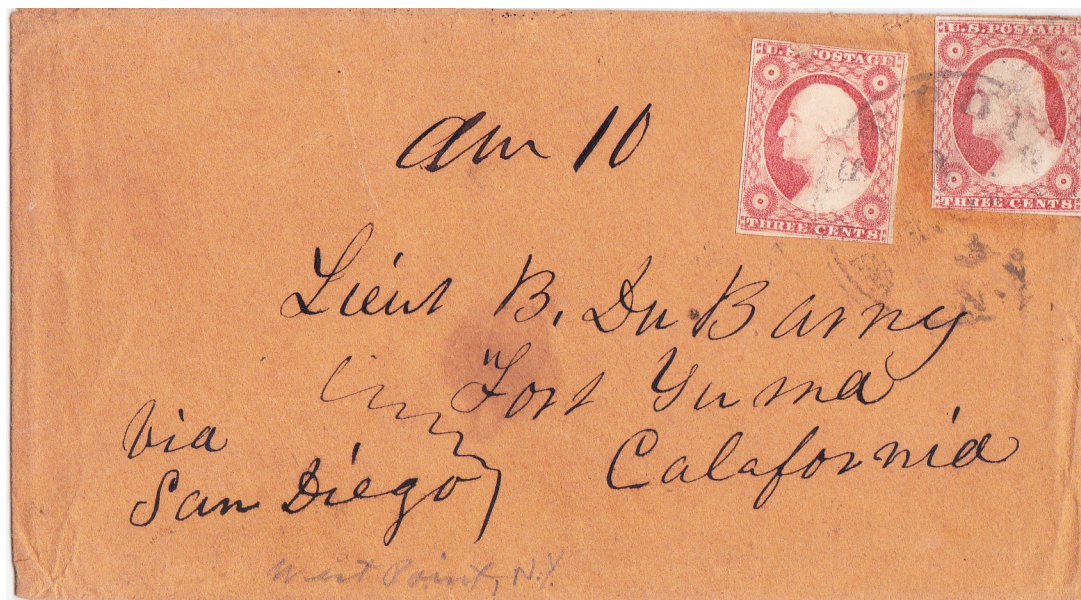 U.S. POSTAGE
THREE CENTS
U.S. POSTAGE
THREE CENTS
Due 10
Lieut B. Du Barry
Fort Yuma
Calafornia
Via
San Diego
West Point, N.Y.